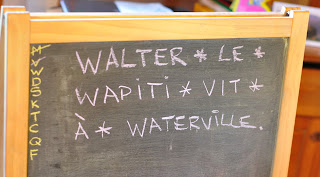 WALTER * LE *
WAPITI * VIT *
À * WATERVILLE.
V
W
D
S
K
T
C
Q
F